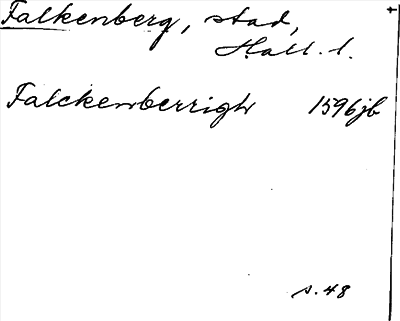 Falkenberg, stad,
Hall. l.
Falckenberrigh 1596 jb
s. 48